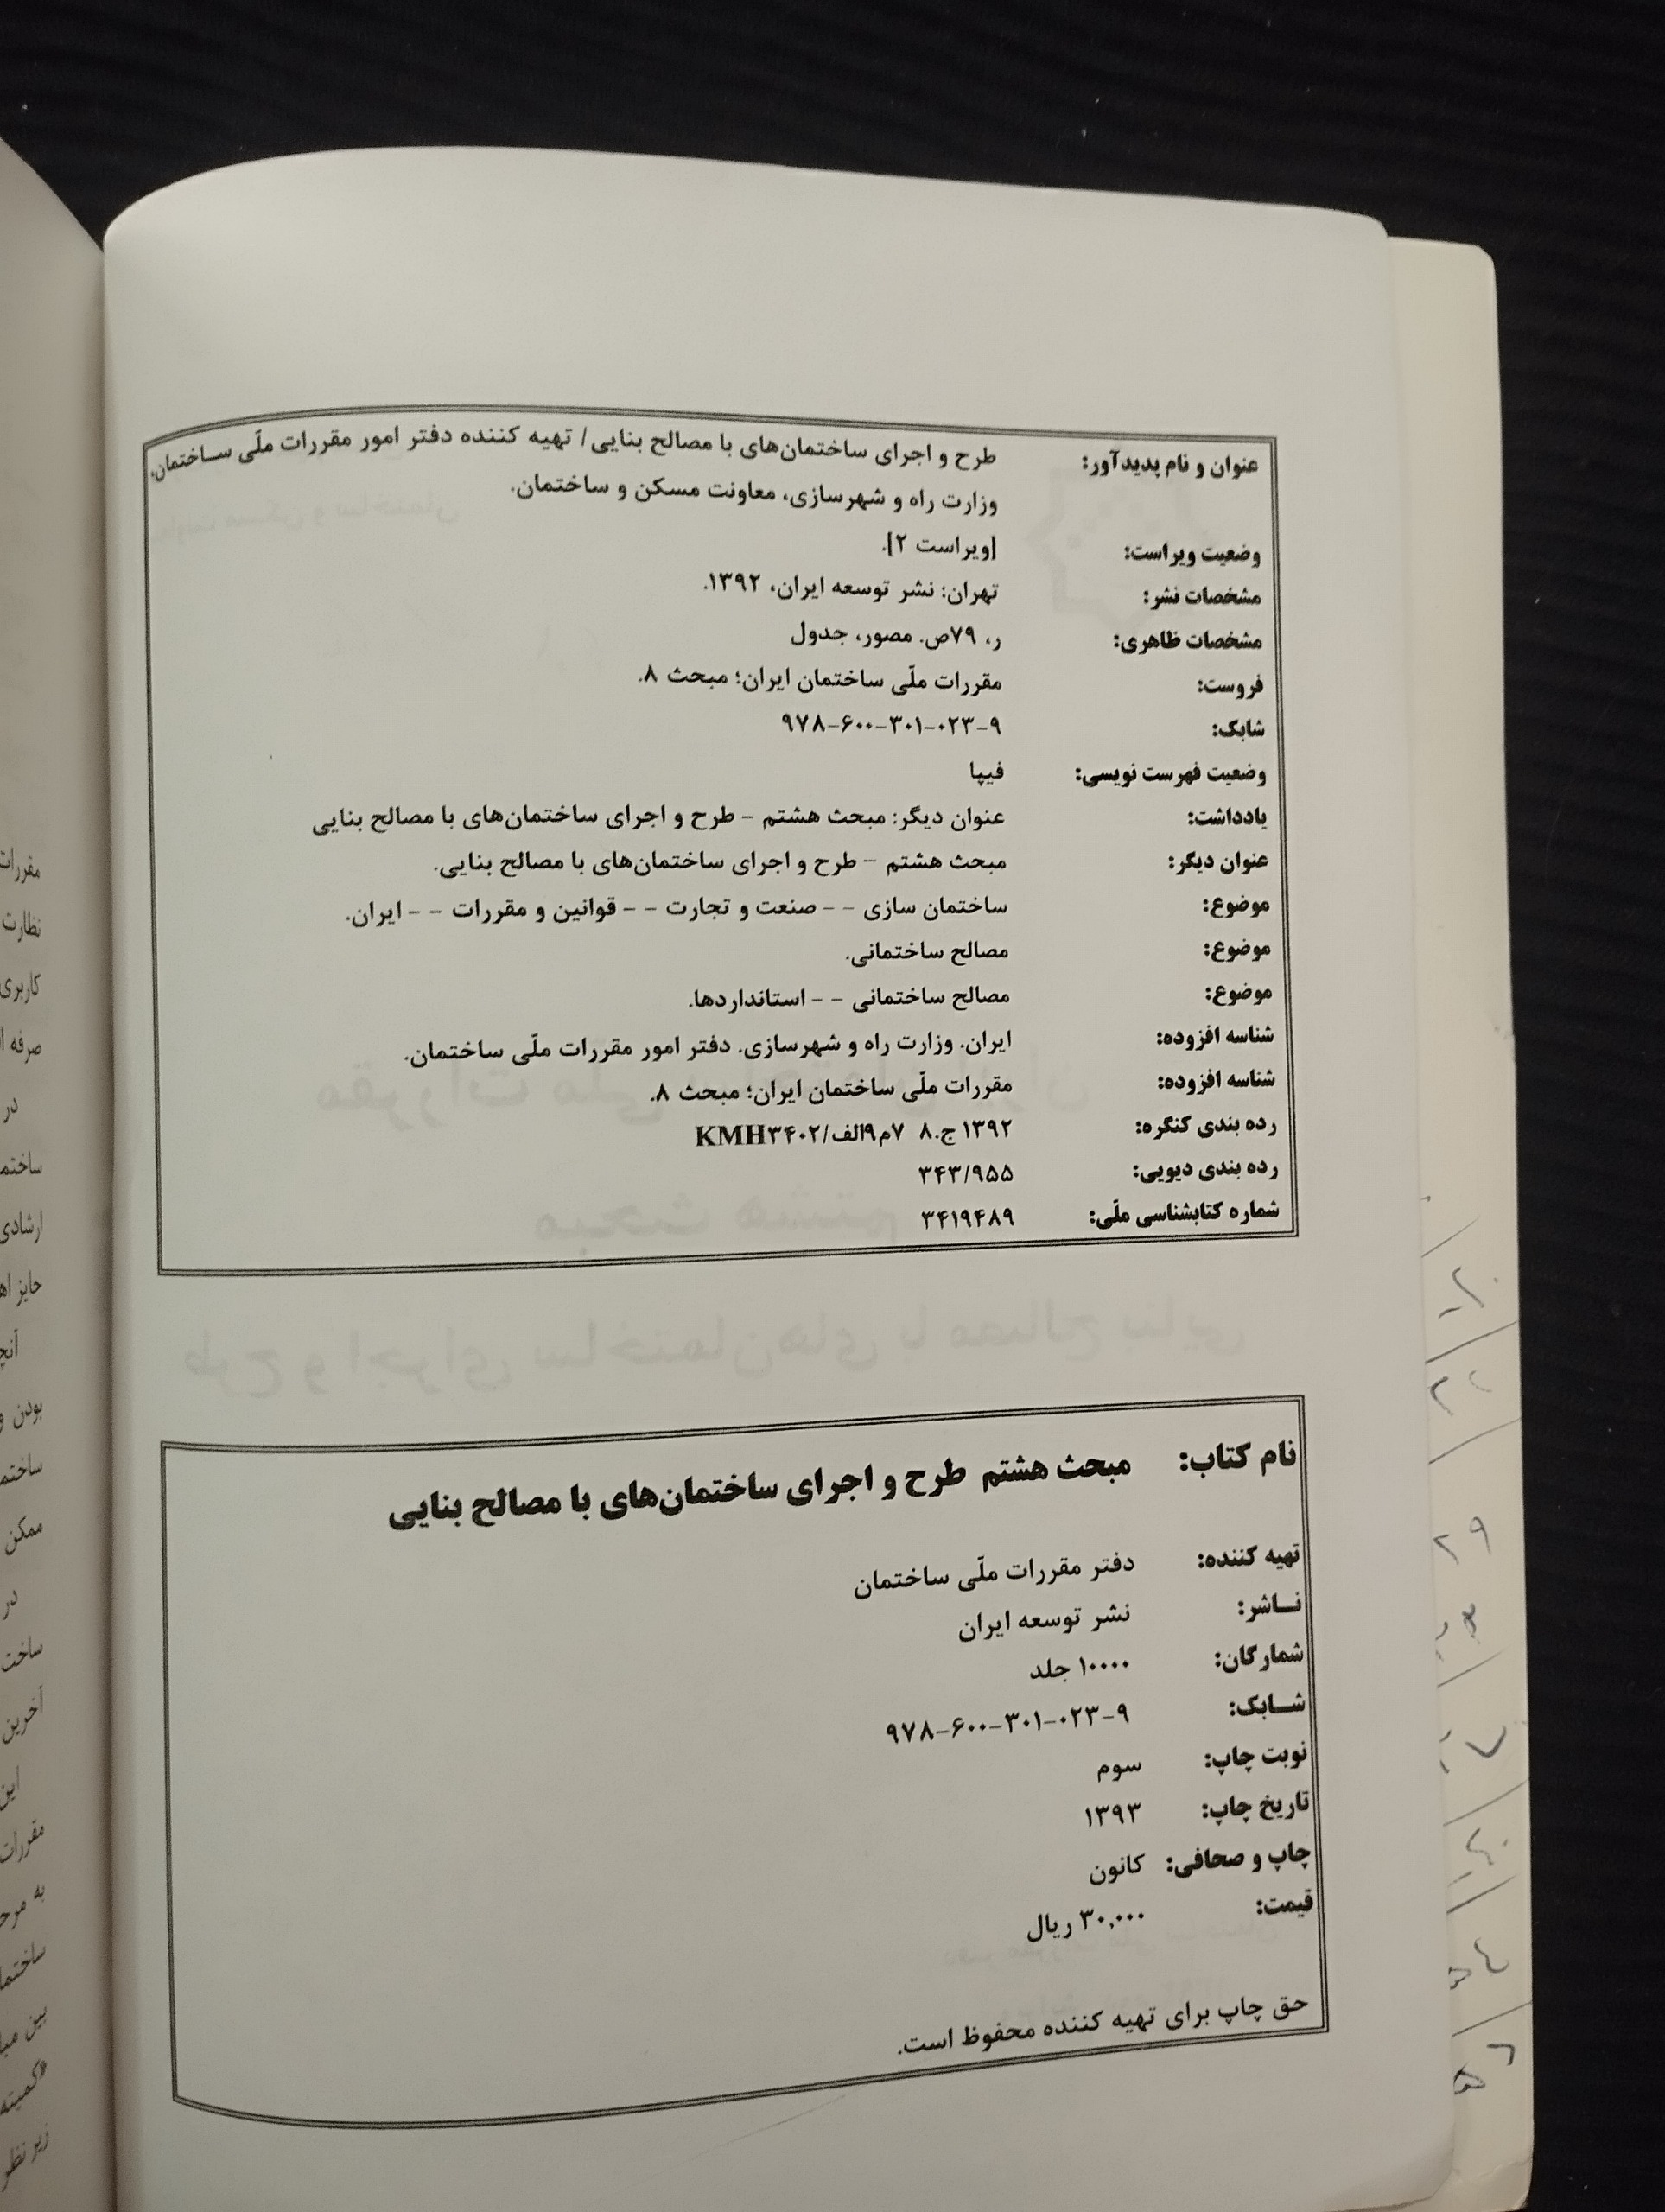 عنوان و نام پدیدآور: طرح و اجرای ساختمان‌های با مصالح بنایی/ تهیه کننده دفتر امور مقررات ملّی ساختمان،
وزارت راه و شهرسازی، معاونت مسکن و ساختمان.
وضعیت ویراست: [ویراست ۲].
مشخصات نشر: تهران: نشر توسعه ایران، ۱۳۹۲.
مشخصات ظاهری: ر، ۷۹ص. مصور، جدول
فروست: مقررات ملّی ساختمان ایران؛ مبحث ۸.
شابک: ۹۷۸-۶۰۰-۳۰۱-۰۲۳-۹
وضعیت فهرست نویسی: فیپا
یادداشت: عنوان دیگر: مبحث هشتم - طرح و اجرای ساختمان‌های با مصالح بنایی
عنوان دیگر: مبحث هشتم - طرح و اجرای ساختمان‌های با مصالح بنایی.
موضوع: ساختمان سازی - - صنعت و تجارت - - قوانین و مقررات - - ایران.
موضوع: مصالح ساختمانی.
موضوع: مصالح ساختمانی - - استانداردها.
شناسه افزوده: ایران. وزارت راه و شهرسازی. دفتر امور مقررات ملّی ساختمان.
شناسه افزوده: مقررات ملّی ساختمان ایران؛ مبحث ۸.
رده بندی کنگره: ۱۳۹۲ ج.۸ ۷م۹الف/KMH۳۴۰۲
رده بندی دیویی: ۳۴۳/۹۵۵
شماره کتابشناسی ملّی: ۳۴۱۹۴۸۹
نام کتاب: مبحث هشتم طرح و اجرای ساختمان‌های با مصالح بنایی
تهیه کننده: دفتر مقررات ملّی ساختمان
نــاشر: نشر توسعه ایران
شمارگان: ۱۰۰۰۰ جلد
شــابک: ۹۷۸-۶۰۰-۳۰۱-۰۲۳-۹
نوبت چاپ: سوم
تاریخ چاپ: ۱۳۹۳
چاپ و صحافی: کانون
قیمت: ۳۰,۰۰۰ ریال
حق چاپ برای تهیه کننده محفوظ است.